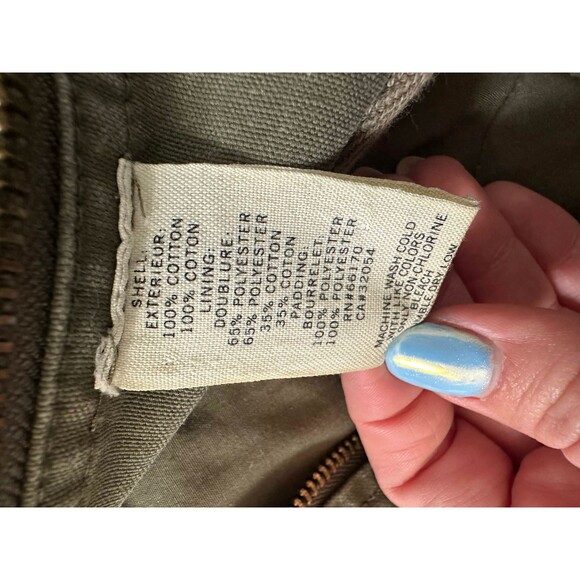 SHELL:
EXTERIEUR:
100% COTTON
100% COTON
LINING:
DOUBLURE:
65% POLYESTER
65% POLYESTER
35% COTTON
35% COTON
PADDING:
BOURRELET:
100% POLYESTER
100% POLYESTER
RN#66170
CA#32054
MACHINE WASH COLD
LIKE COLORS,
ONLY NON-CHLORINE
BLEACH
DRY LOW